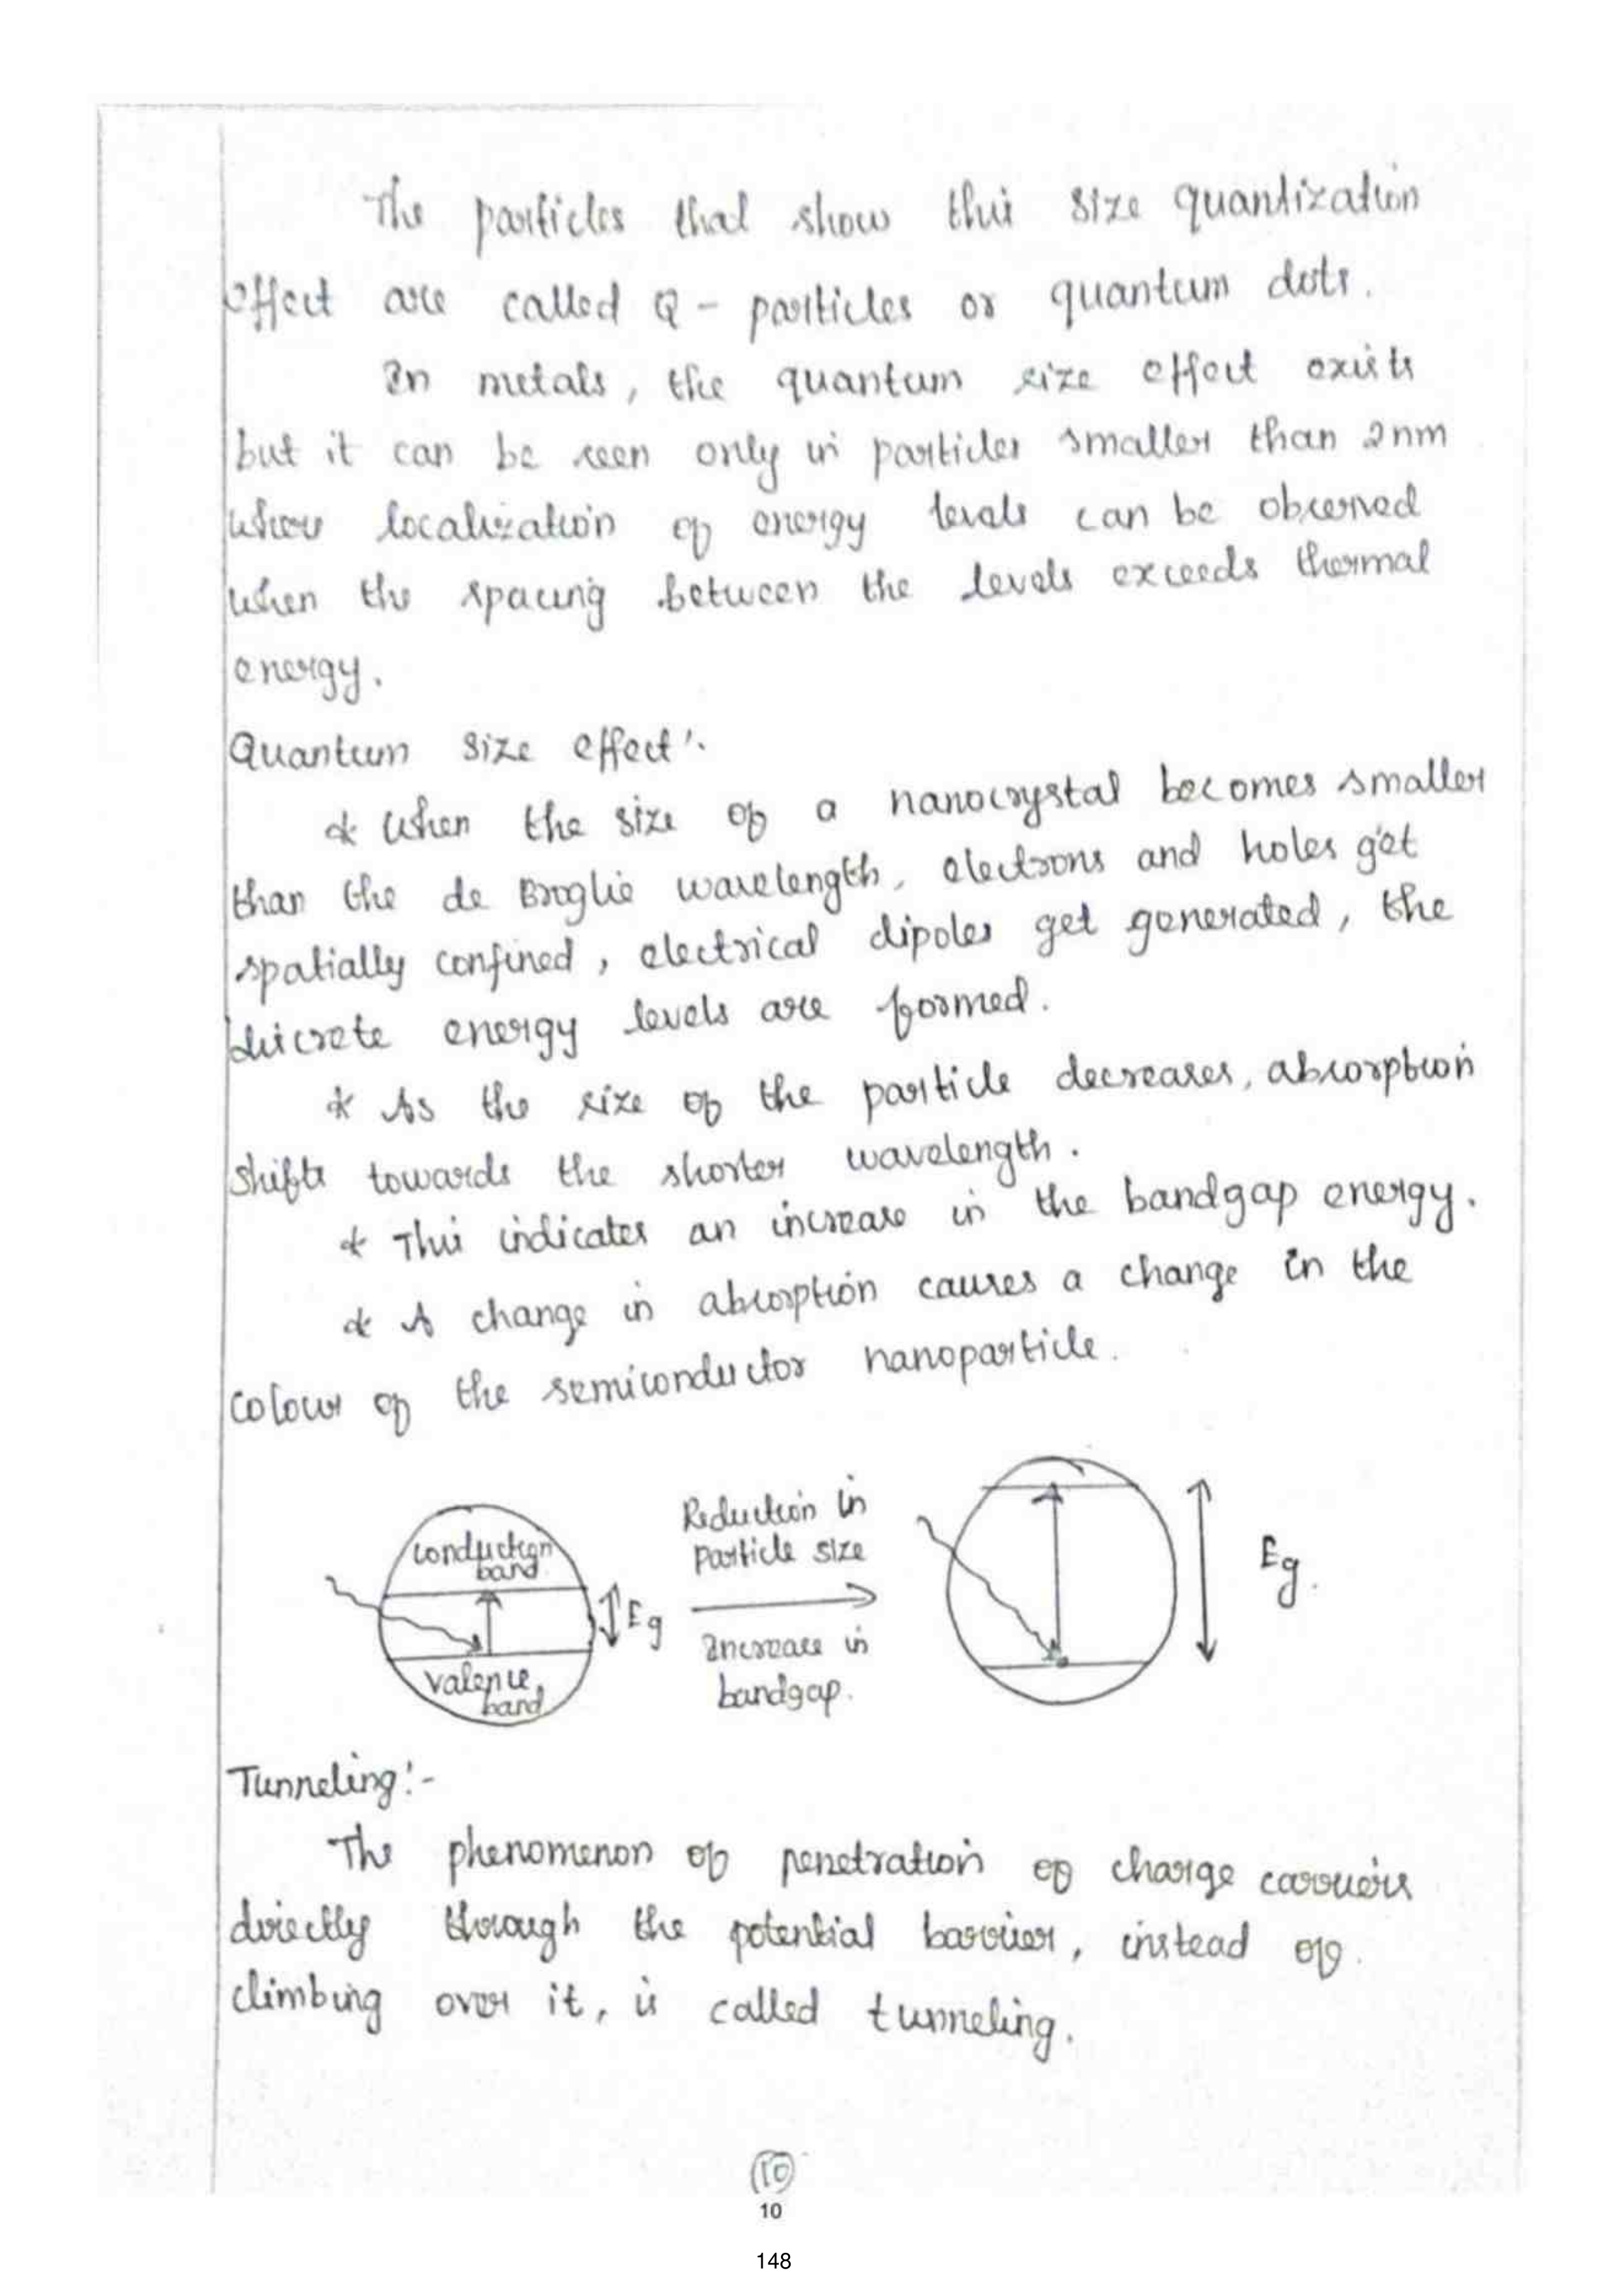 The particles that show this size quantization
effect are called Q - particles or quantum dots.
In metals, the quantum size effect exists
but it can be seen only in particles smaller than 2nm
where localization of energy levels can be observed
when the spacing between the levels exceeds thermal
energy.
Quantum size effect :-
* When the size of a nanocrystal becomes smaller
than the de Broglie wavelength, electrons and holes get
spatially confined, electrical dipoles get generated, the
discrete energy levels are formed.
* As the size of the particle decreases, absorption
shifts towards the shorter wavelength.
* This indicates an increase in the bandgap energy.
* A change in absorption causes a change in the
colour of the semiconductor nanoparticle.
conduction
band
Eg
valence
band
Reduction in
Particle size
Increase in
bandgap.
Eg.
Tunneling:-
The phenomenon of penetration of charge carriers
directly through the potential barrier, instead of
climbing over it, is called tunneling.
10
10
148